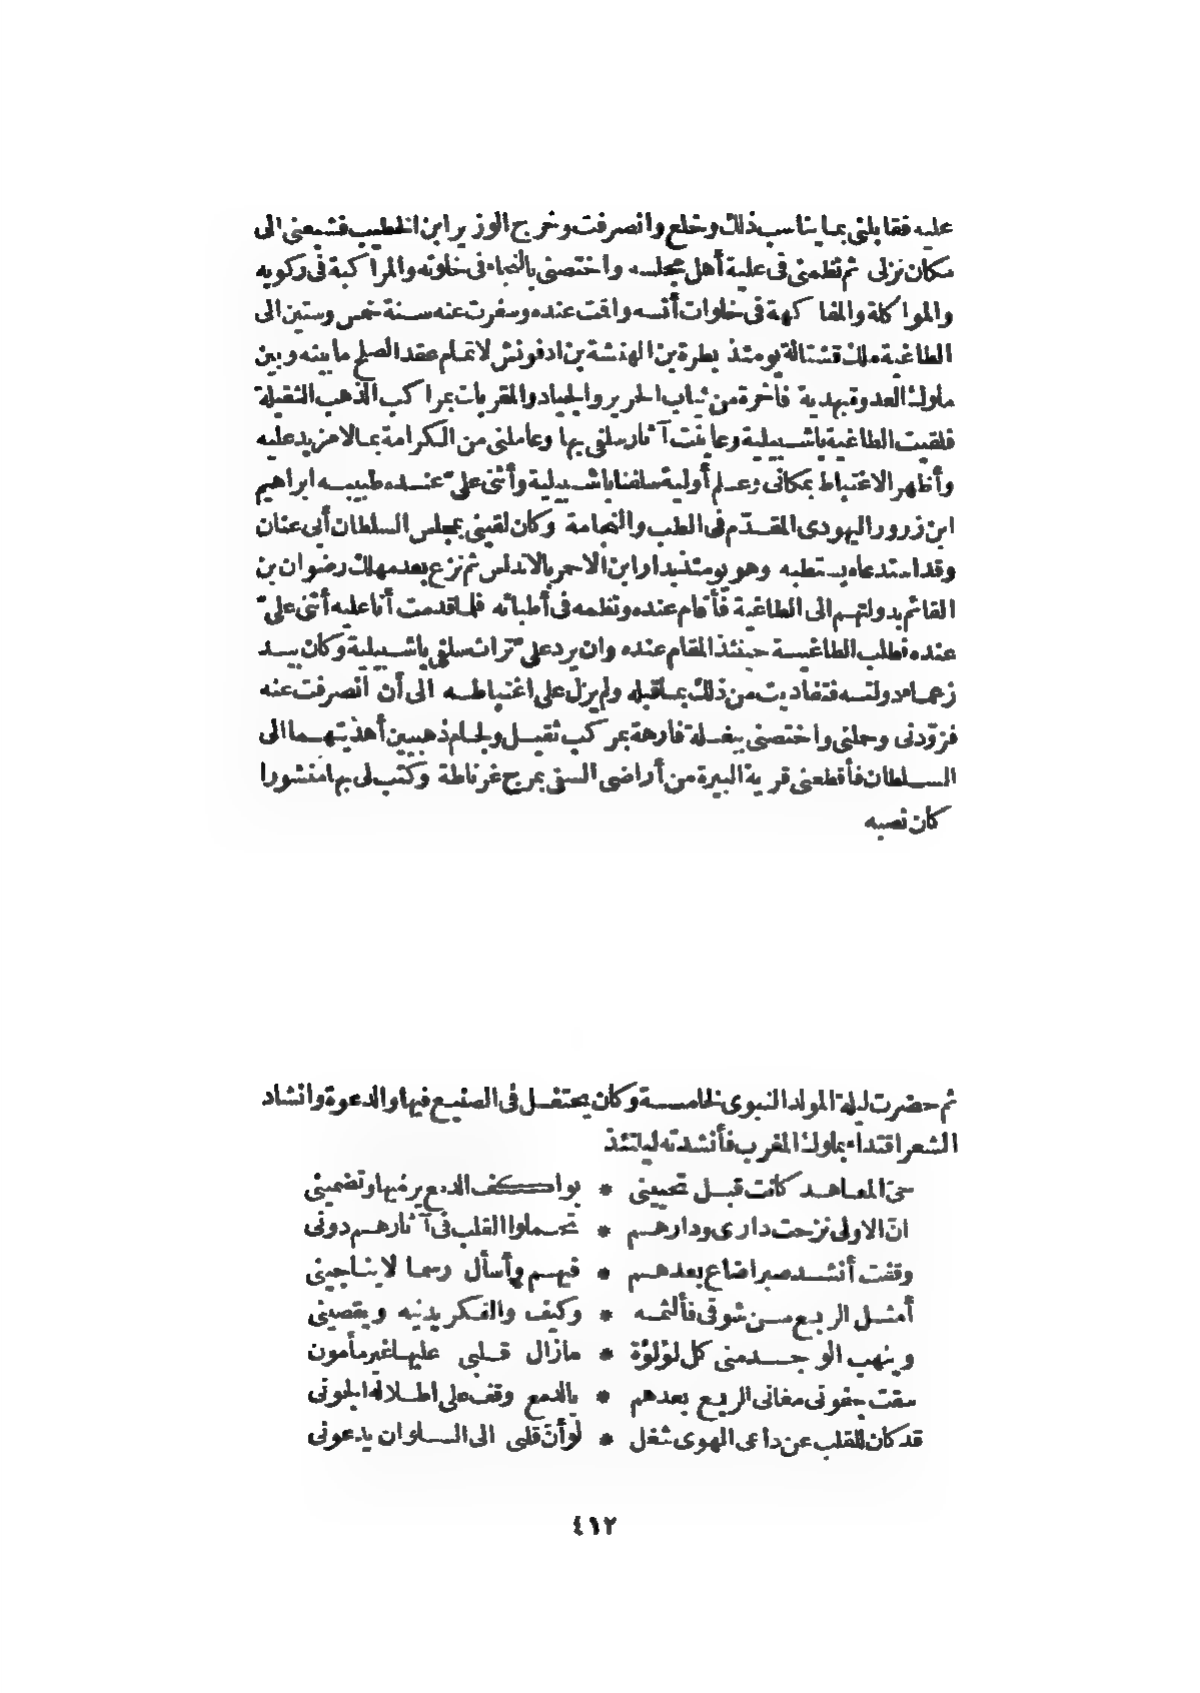 عليه فقابلني بما يناسب ذلك وخلع وانصرفت وخرج الوزير ابن الخطيب فشيعني الى
مكان نزلي ثم نظمني في علية أهل مجلسه واختصني بالنجاء في خلوته والمراكبة في ركوبه
والمواكلة والمفاكهة في خلوات أنسه وأقمت عنده وسفرت عنه سنة خمس وستين الى
الطاغية ملك قشتالة يومئذ بطرة بن الهنشة بن ادفونش لاتمام عقد الصلح ما بينه وبين
ملوك العدوة بهدية فاخرة من ثياب الحرير والجياد والمقربات بمراكب الذهب الثقيلة
فلقيت الطاغية باشبيلية وعاينت آثار سلفي بها وعاملني من الكرامة بما لا مزيد عليه
وأظهر الاغتباط بمكاني وعلم أولية سلفنا باشبيلية وأثنى عليّ عنده طبيبه ابراهيم
ابن زرور اليهودى المقدّم في الطب والنجامة وكان لقيني بمجلس السلطان أبي عنان
وقد استدعاه يستطبه وهو يومئذ بدار ابن الاحمر بالاندلس ثم نزع بعد مهلك رضوان بن
القائم بدولتهم الى الطاغية فأقام عنده ونظمه في أطبائه فلما قدمت أنا عليه أثنى عليّ
عنده فطلب الطاغية حينئذ المقام عنده وان يرد عليّ تراث سلفي باشبيلية وكان بيد
زعماء دولته فتفاديت من ذلك بما قبله ولم يزل على اغتباطه الى أن انصرفت عنه
فزوّدني وحملني واختصني ببغلة فارهة بمركب ثقيل ولجام ذهبيين أهديتهما الى
السلطان فأقطعني قرية البيرة من أراضى السقي بمرج غرناطة وكتب لي بها منشورا
كان نصه
ثم حضرت ليلة المولد النبوى لخامسة وكان يحتفل في الصنيع فيها والدعوة وانشاد
الشعر اقتداء بملوك المغرب فأنشدته ليلتئذ
حيّ المعاهد كانت قبل تحييني * بواكف الدمع يرويها وتظميني
انّ الاولى نزحت دارى ودارهم * تحملوا القلب في آثارهم دوني
وقفت أنشد صبرا ضاع بعدهم * فيهم وأسأل رسما لا يناجيني
أمثل الربع من شوقي فألثمه * وكيف والفكر يدنيه ويقصيني
وينهب الوجد مني كل لؤلؤة * مازال قلبي عليها غير مأمون
سقت جفوني مغاني الربع بعدهم * بالدمع وقف على اطلاله الجون
قد كان للقلب عن داعي الهوى شغل * لو أن قلبي الى السلوان يدعوني
٤١٢